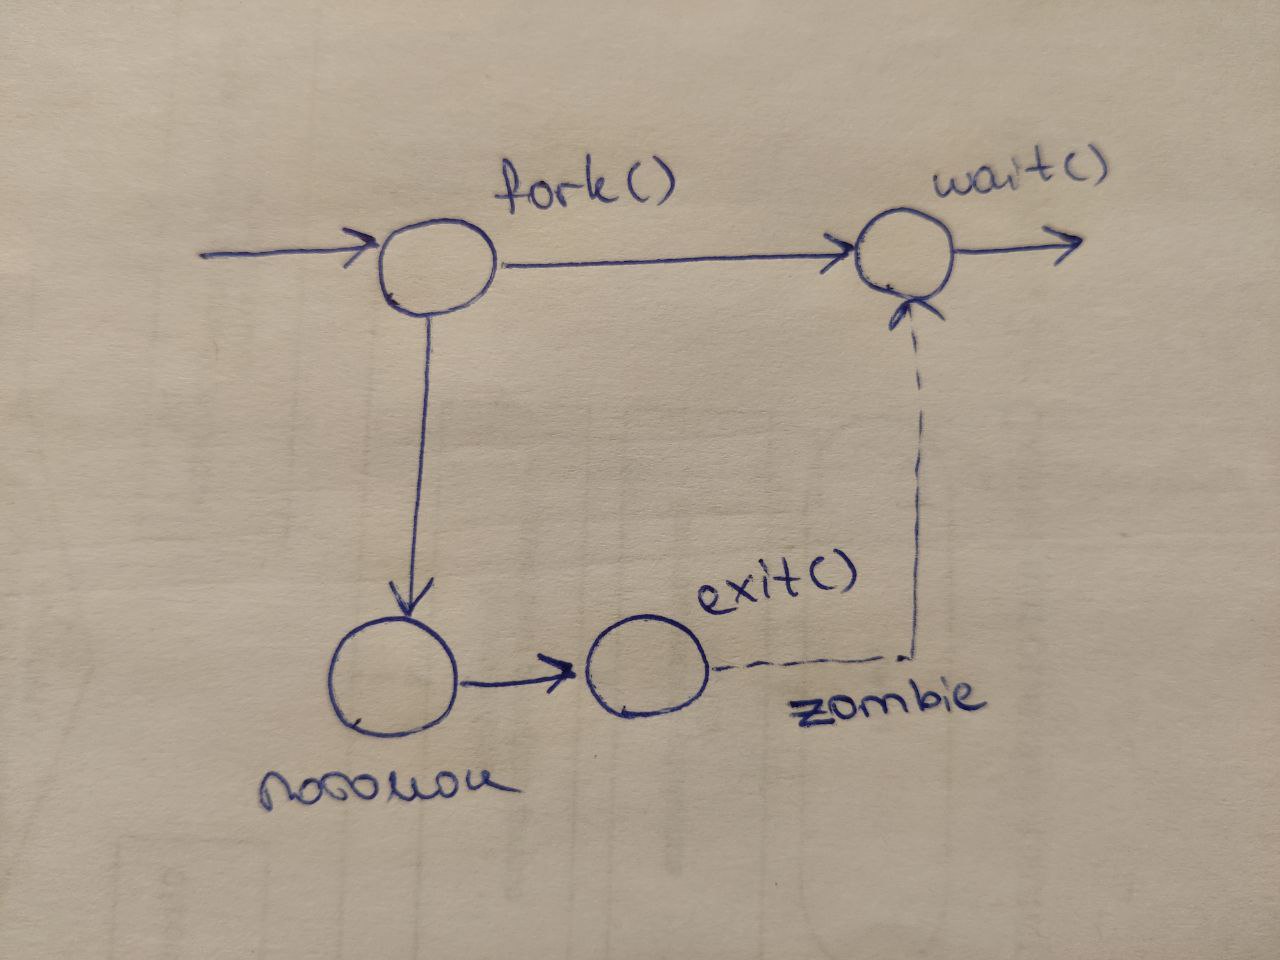 fork()
wait()
exit()
zombie
потомок